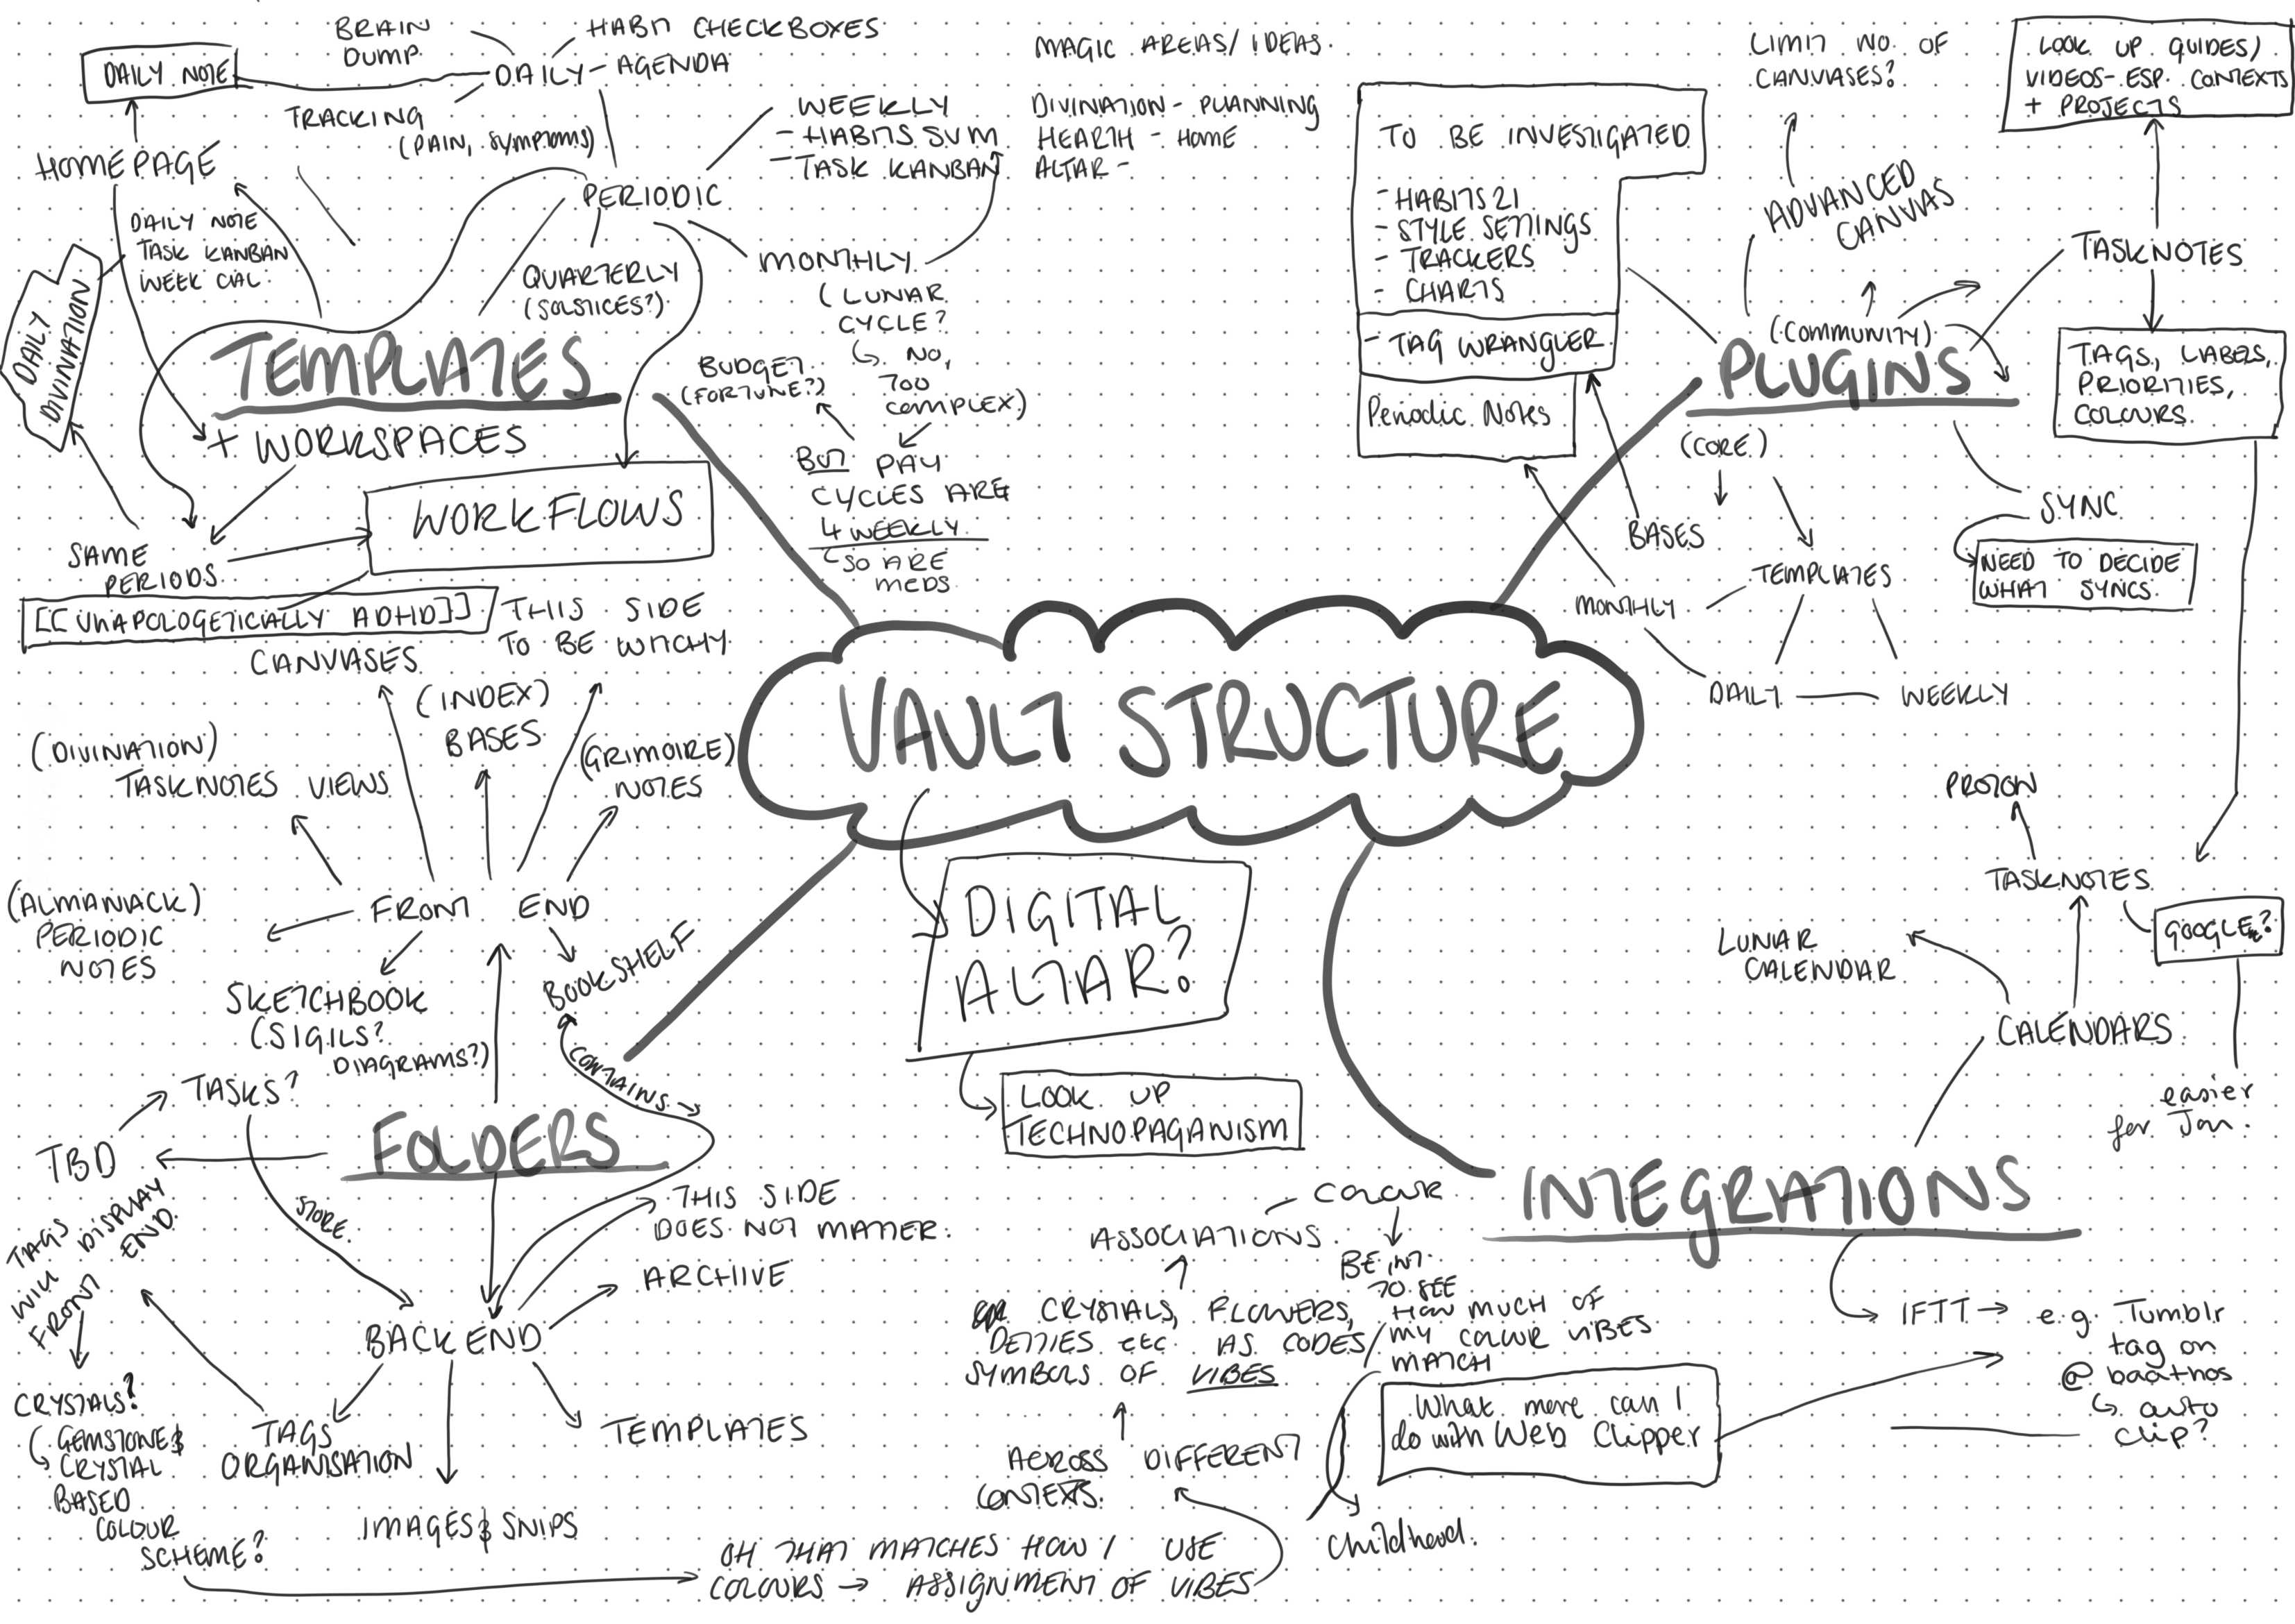 BRAIN
DUMP
HABIT CHECKBOXES
DAILY - AGENDA
DAILY NOTE
TRACKING
(PAIN, SYMPTOMS)
HOMEPAGE
DAILY NOTE
TASK KANBAN
WEEK CAL
DAILY
DIVINATION
PERIODIC
WEEKLY
- HABITS SUM
- TASK KANBAN
QUARTERLY
(SOLSTICES?)
MONTHLY
(LUNAR
CYCLE?
↳ NO,
TOO
COMPLEX)
BUDGET
(FORTUNE?)
BUT PAY
CYCLES ARE
4 WEEKLY
SO ARE
MEDS
MAGIC AREAS/IDEAS.
DIVINATION - PLANNING
HEALTH - HOME
ALTAR -
TEMPLATES
+ WORKSPACES
WORKFLOWS
SAME
PERIODS
[[UNAPOLOGETICALLY ADHD]]
TO BE INVESTIGATED
- HABITS 21
- STYLE SETTINGS
- TRACKERS
- CHARTS
- TAG WRANGLER
Periodic Notes
LIMIT NO. OF
CANVASES?
ADVANCED
CANVAS
LOOK UP GUIDES/
VIDEOS - ESP. CONTEXTS
+ PROJECTS
TASKNOTES
TAGS, LABELS,
PRIORITIES,
COLOURS.
(COMMUNITY)
PLUGINS
(CORE)
BASES
TEMPLATES
MONTHLY
DAILY
WEEKLY
SYNC
NEED TO DECIDE
WHAT SYNCS.
VAULT STRUCTURE
DIGITAL
ALTAR?
LOOK UP
TECHNOPAGANISM
THIS SIDE
TO BE WITCHY
CANVASES
(INDEX)
BASES
(GRIMOIRE)
NOTES
(DIVINATION)
TASKNOTES VIEWS
(ALMANACK)
PERIODIC
NOTES
FRONT END
SKETCHBOOK
(SIGILS?
DIAGRAMS?)
BOOKSHELF
CONTAINS
TASKS?
TBD
STORE
FOLDERS
TAGS
WILL DISPLAY
FRONT END
THIS SIDE
DOES NOT MATTER.
ARCHIVE
BACK END
TEMPLATES
TAGS
ORGANISATION
IMAGES & SNIPS
CRYSTALS?
(GEMSTONE &
CRYSTAL
BASED
COLOUR
SCHEME?
OH THAT MATCHES HOW I USE
COLOURS → ASSIGNMENT OF VIBES
ACROSS DIFFERENT
CONTEXTS.
CRYSTALS, FLOWERS,
DEITIES ETC. AS CODES/
SYMBOLS OF VIBES
ASSOCIATIONS.
COLOUR
BE INT.
TO SEE
HOW MUCH OF
MY COLOUR VIBES
MATCH
Childhood.
PROTON
TASKNOTES
GOOGLE?
easier
for Jon.
LUNAR
CALENDAR
CALENDARS
INTEGRATIONS
IFTT → e.g. Tumblr
tag on
@baathos
↳ auto
clip?
What more can I
do with Web Clipper